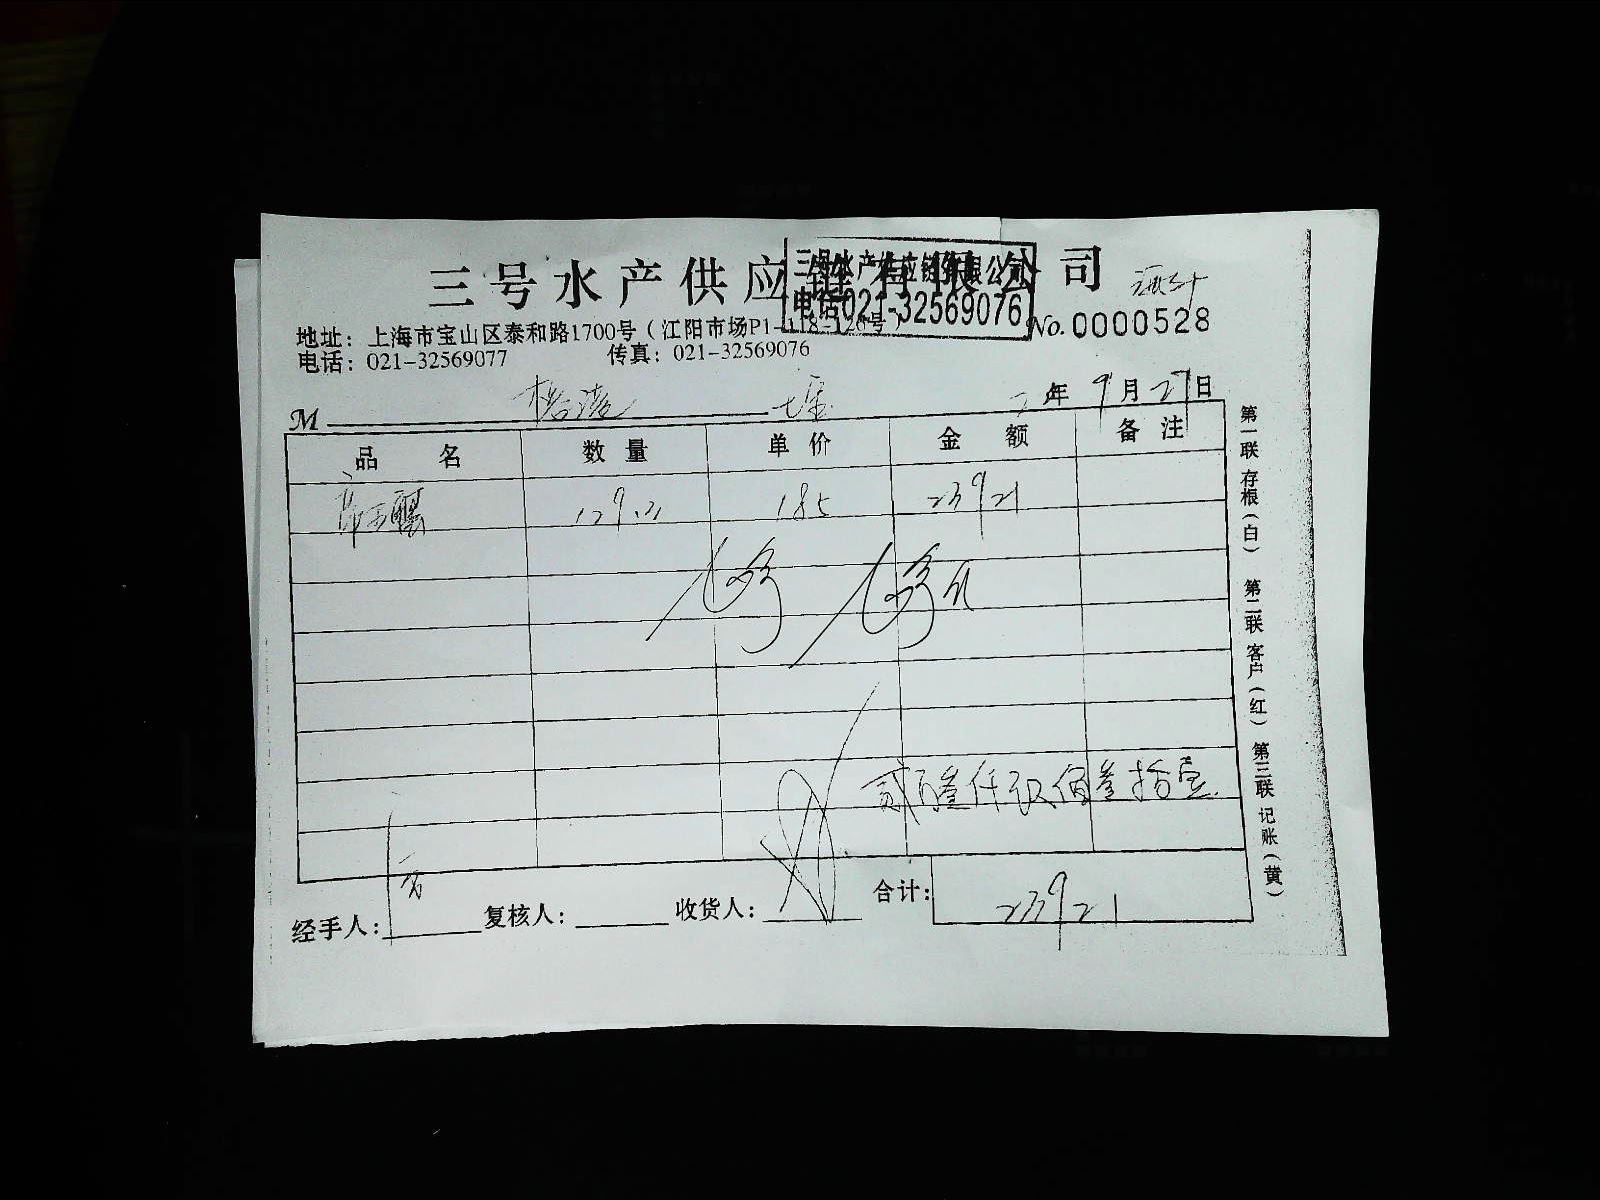 三号水产供应链有限公司
三号水产供应链有限公司
电话021-32569076
No.0000528
地址：上海市宝山区泰和路1700号（江阳市场P1-118-120号）
电话：021-32569077 传真：021-32569076
年 9月27日
M
品名 数量 单价 金额 备注
185 23921
贰万叁仟玖佰 拾
合计：23921
经手人： 复核人： 收货人：
第一联 存根（白） 第二联 客户（红） 第三联 记账（黄）